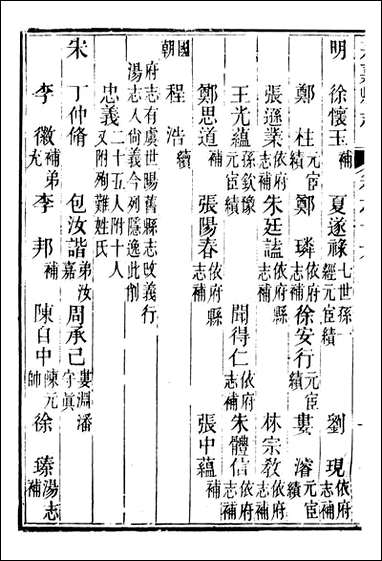 明 徐懷玉補 夏遂祿七世孫經元宦績 劉現依府志補
鄭柱元宦績 鄭璘依府志補 徐安行元宦績 婁濬元宦績
張遜業依府志補 朱廷諡依府志補 林宗敎依府志補
王光蘊元宦績孫欽豫 聞得仁依府志補 朱體信依府志補
鄭思道補 張陽春依府縣志補 張中蘊補
國朝 程浩續
府志有虞世陽舊縣志改義行
湯志入尙義今列隱逸此削
忠義二十五人附十人又附殉難姓氏
宋 丁仲脩 包汝諧弟汝嘉 周承己婁淵潘守眞
李徽補弟充 李邦補 陳自中陳元帥 徐臻湯志補